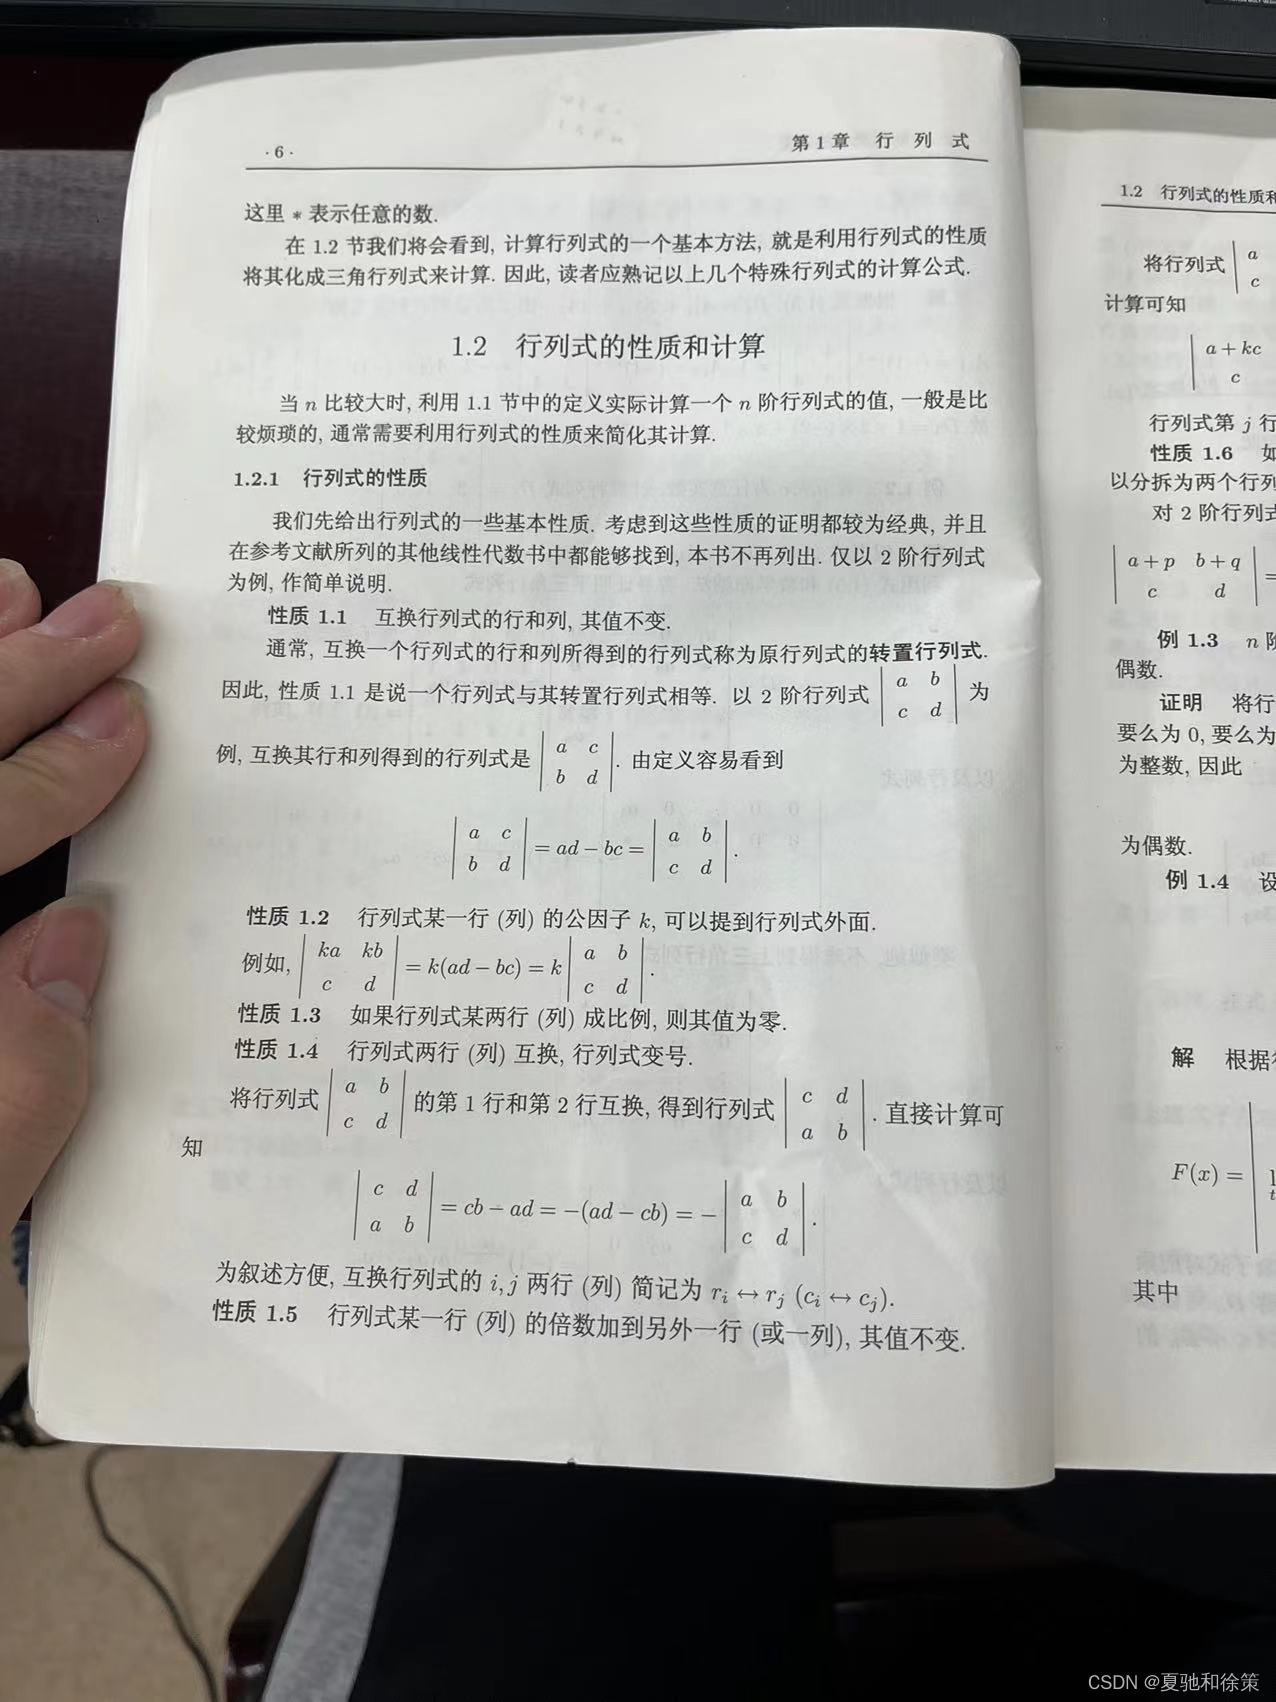 · 6 ·
第 1 章 行 列 式
这里 * 表示任意的数.
在 1.2 节我们将会看到, 计算行列式的一个基本方法, 就是利用行列式的性质
将其化成三角行列式来计算. 因此, 读者应熟记以上几个特殊行列式的计算公式.
1.2 行列式的性质和计算
当 n 比较大时, 利用 1.1 节中的定义实际计算一个 n 阶行列式的值, 一般是比
较烦琐的, 通常需要利用行列式的性质来简化其计算.
1.2.1 行列式的性质
我们先给出行列式的一些基本性质. 考虑到这些性质的证明都较为经典, 并且
在参考文献所列的其他线性代数书中都能够找到, 本书不再列出. 仅以 2 阶行列式
为例, 作简单说明.
性质 1.1 互换行列式的行和列, 其值不变.
通常, 互换一个行列式的行和列所得到的行列式称为原行列式的转置行列式.
因此, 性质 1.1 是说一个行列式与其转置行列式相等. 以 2 阶行列式 | a b ; c d | 为
例, 互换其行和列得到的行列式是 | a c ; b d |. 由定义容易看到
| a c ; b d | = ad − bc = | a b ; c d |.
性质 1.2 行列式某一行 (列) 的公因子 k, 可以提到行列式外面.
例如, | ka kb ; c d | = k(ad − bc) = k | a b ; c d |.
性质 1.3 如果行列式某两行 (列) 成比例, 则其值为零.
性质 1.4 行列式两行 (列) 互换, 行列式变号.
将行列式 | a b ; c d | 的第 1 行和第 2 行互换, 得到行列式 | c d ; a b |. 直接计算可
知
| c d ; a b | = cb − ad = −(ad − cb) = − | a b ; c d |.
为叙述方便, 互换行列式的 i, j 两行 (列) 简记为 rᵢ ↔ rⱼ (cᵢ ↔ cⱼ).
性质 1.5 行列式某一行 (列) 的倍数加到另外一行 (或一列), 其值不变.
1.2 行列式的性质和
将行列式 | a ; c
计算可知
| a + kc ; c
行列式第 j 行
性质 1.6 如
以分拆为两个行列
对 2 阶行列式
| a + p b + q ; c d | =
例 1.3 n 阶
偶数.
证明 将行
要么为 0, 要么为
为整数, 因此
为偶数.
例 1.4 设
解 根据行
F(x) =
其中
CSDN @夏驰和徐策